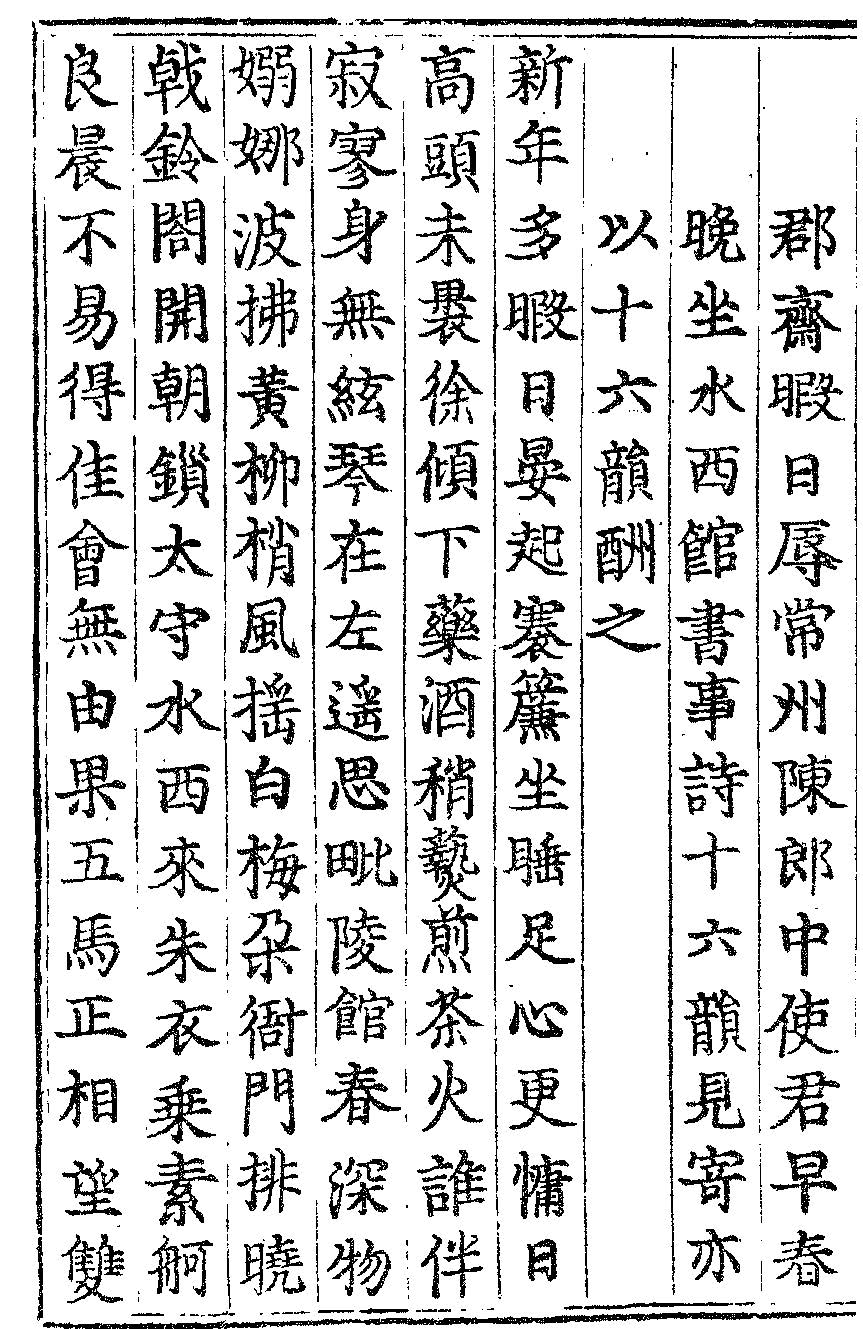 郡齋暇日辱常州陳郎中使君早春
晚坐水西館書事詩十六韻見寄亦
以十六韻酬之
新年多暇日晏起褰簾坐睡足心更慵日
高頭未裹徐傾下藥酒稍爇煎茶火誰伴
寂寥身無絃琴在左遥思毗陵館春深物
嫋娜波拂黃柳梢風揺白梅朶衙門排曉
戟鈴閤開朝鎖太守水西來朱衣乗素舸
良晨不易得佳會無由果五馬正相望雙